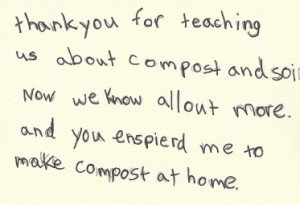 thankyou for teaching
us about compost and soi
Now we know allout more.
and you enspierd me to
make compost at home.